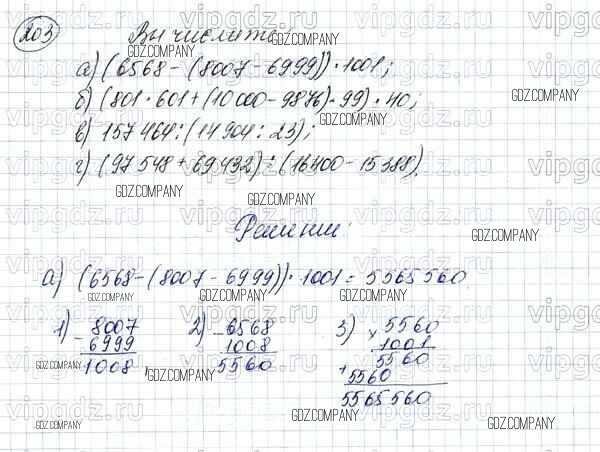 203 Вычислите
а) (6568 - (8007 - 6999)) · 1001;
б) (801 · 601 + (10 000 - 9876) · 99) · 40;
в) 157 464 : (14 904 : 23);
г) (97 548 + 69 432) : (16400 - 15 388).
Решение:
а) (6568 - (8007 - 6999)) · 1001 = 5 565 560
1) 8007
- 6999
1008,
2) - 6568
1008
5560
3) × 5560
1001
5560
+ 5560
5565 560
vipgdz.ru
GDZ.COMPANY